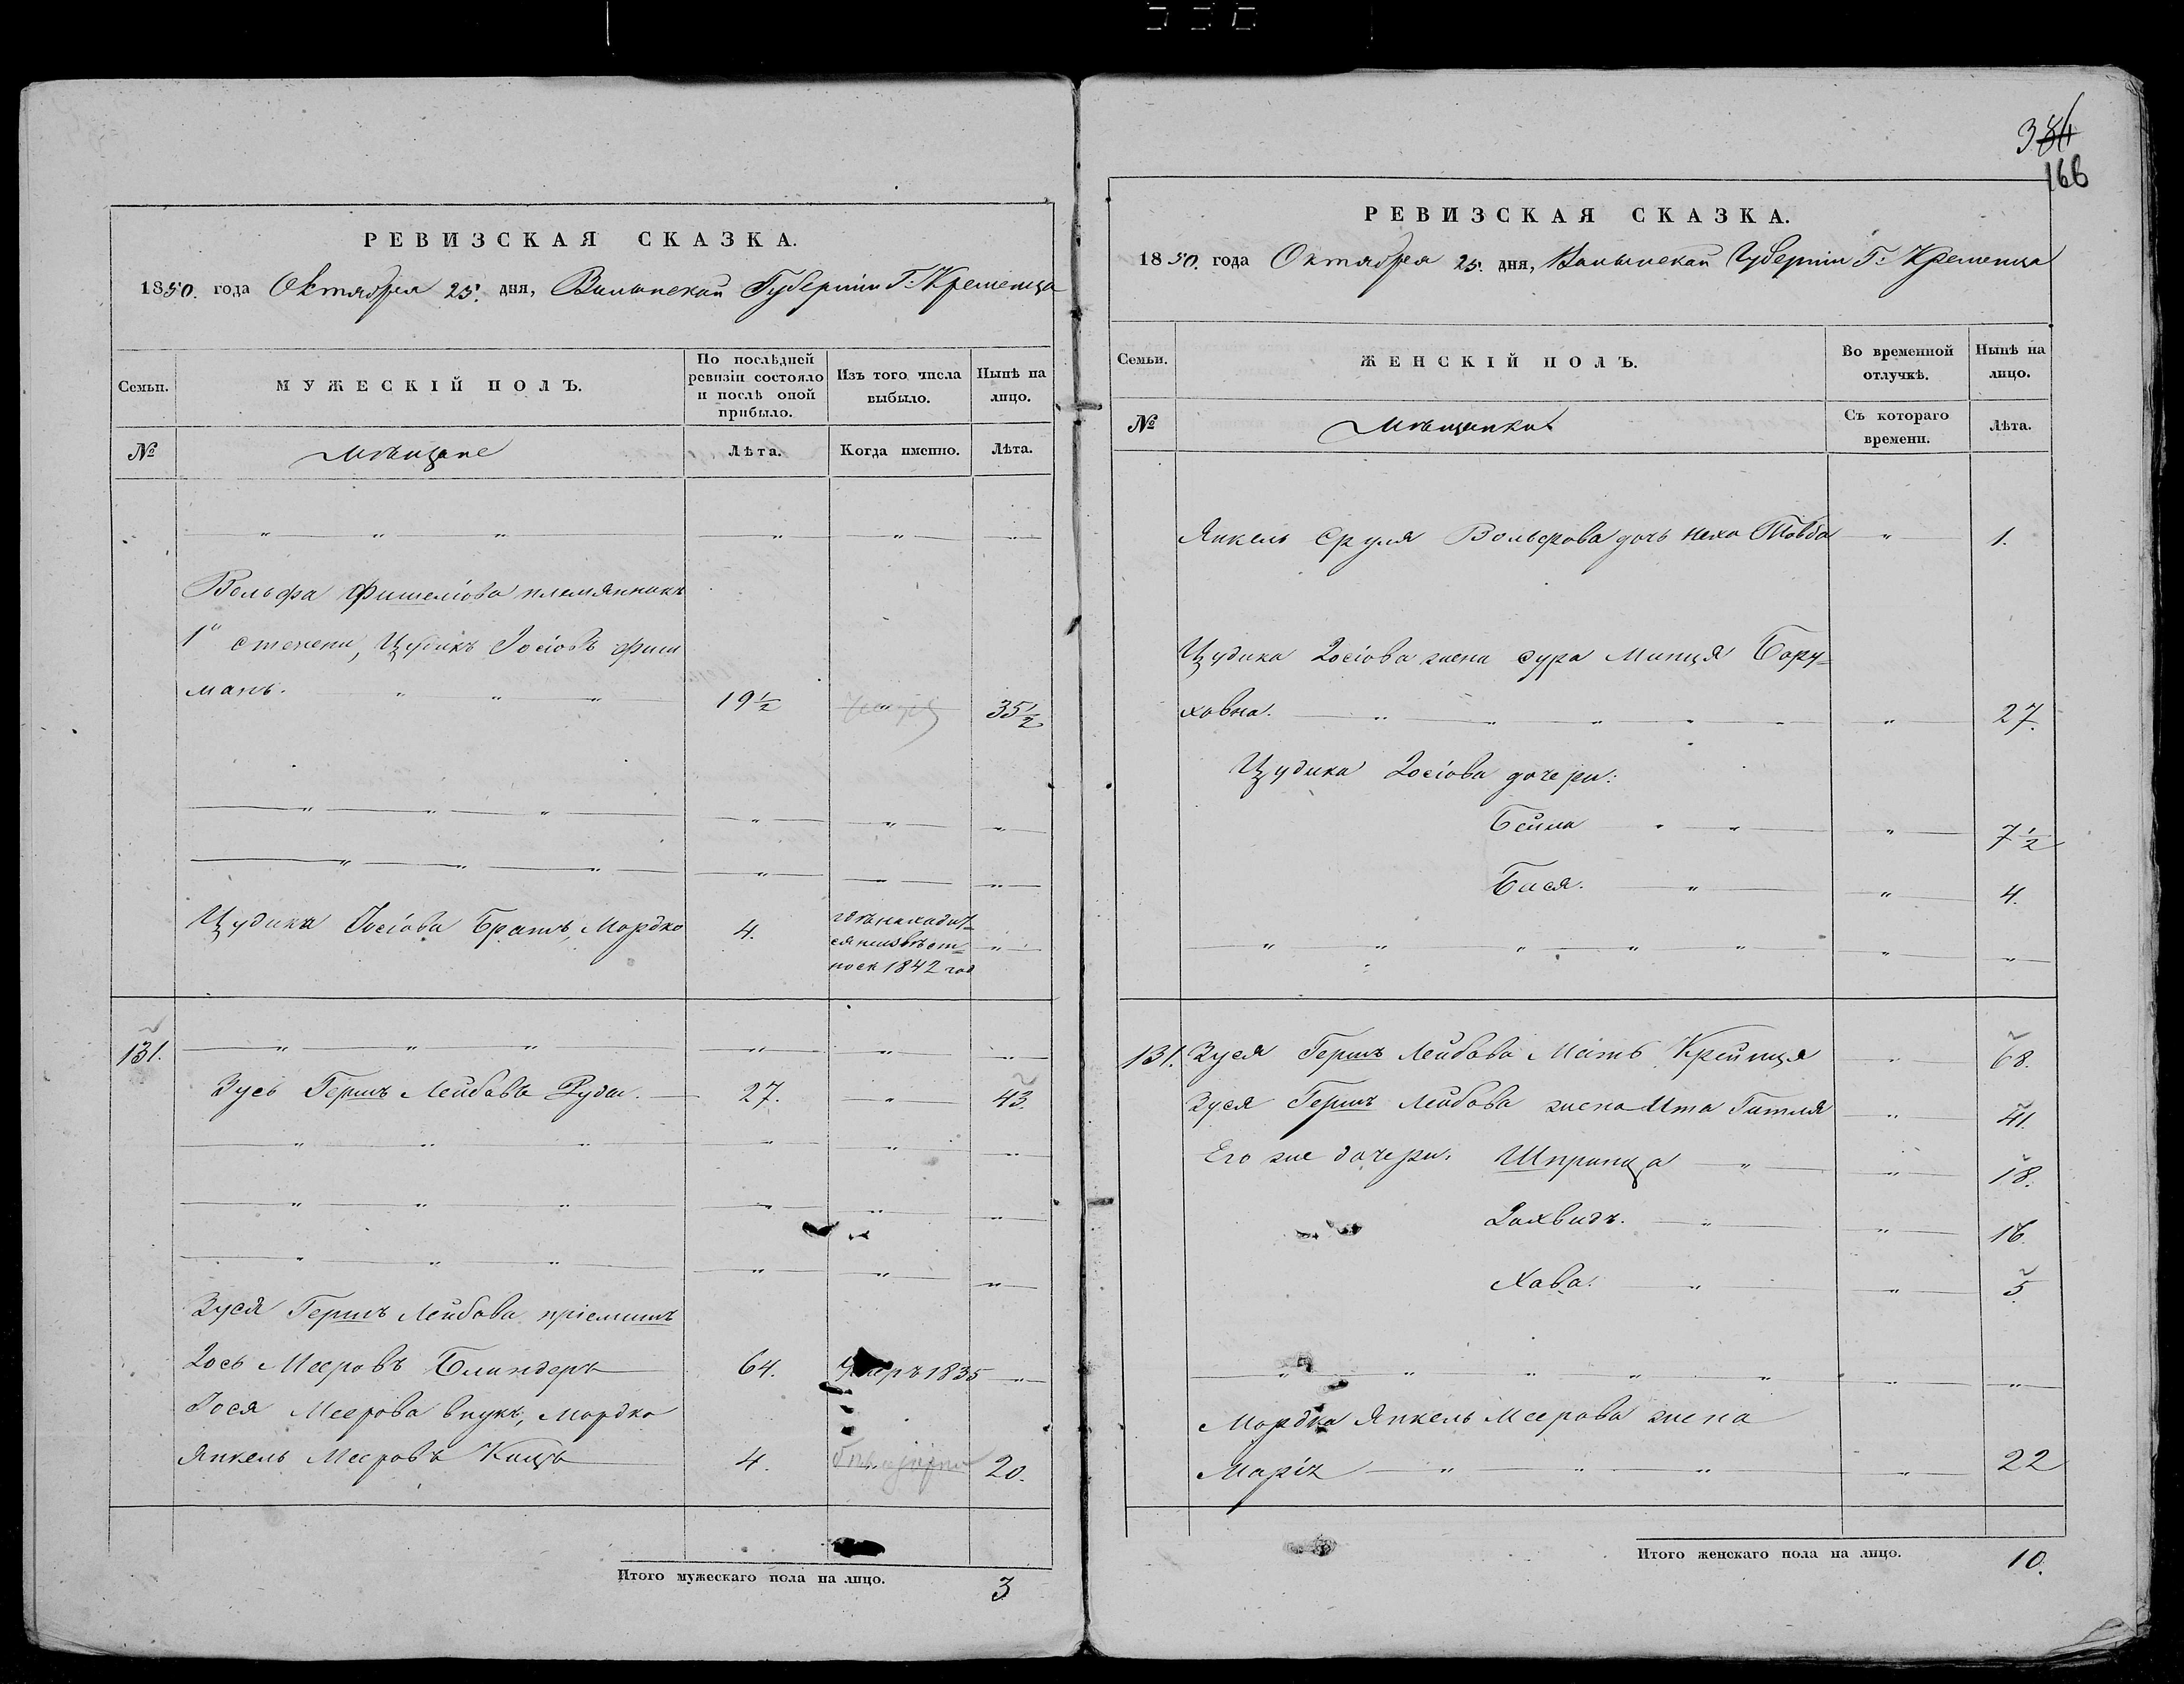 РЕВИЗСКАЯ СКАЗКА.
1850. года Октября 25. дня, Волынской Губерніи Г: Кременца
Семьи.
МУЖЕСКІЙ ПОЛЪ.
По послѣдней ревизіи состояло и послѣ оной прибыло.
Изъ того числа выбыло.
Нынѣ на лицо.
№
Мѣщане
Лѣта.
Когда именно.
Лѣта.
Вольфа Фишеліова племянникъ
1й степени, Цудикъ Іосіовъ Фиш
манъ. 19½ 35½
Цудика Іосіова Братъ, Мордко 4. гдѣ находит=
ся неизвѣст=
но съ 1842 год
131.
Зусь Гершъ Лейбовъ Руды. 27. 43.
Зуся Гершъ Лейбова пріемышъ
Іось Мееровъ Блиндеръ 64. Умеръ 1835
Іося Меерова внукъ, Мордко
Янкель Мееровъ Кацъ 4. 20.
Итого мужескаго пола на лицо. 3
384
166
РЕВИЗСКАЯ СКАЗКА.
1850. года Октября 25. дня, Волынской Губерніи Г: Кременца
Семьи.
ЖЕНСКІЙ ПОЛЪ.
Во временной отлучкѣ.
Нынѣ на лицо.
№
Мѣщанки
Съ котораго времени.
Лѣта.
Янкель Сруля Вольфова дочь Неха Товба 1.
Цудика Іосіова жена Сура Минця Бору=
ховна. 27.
Цудика Іосіова дочери:
Бейла 7½
Бася. 4.
131. Зуся Гершъ Лейбова Мать Крейнця 68.
Зуся Гершъ Лейбова жена Ита Гитля 41.
Его же дочери: Шпринца 18.
16.
Хава. 5.
Мордка Янкель Меерова жена
22
Итого женскаго пола на лицо. 10.